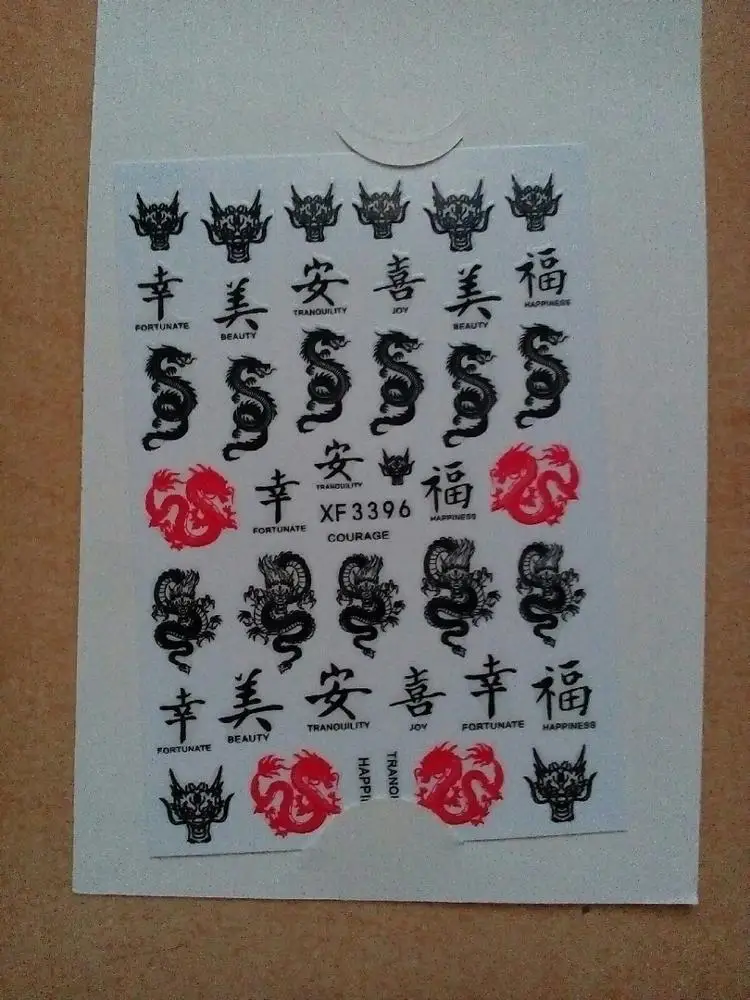 幸 美 安 喜 美 福
FORTUNATE BEAUTY TRANQUILITY JOY BEAUTY HAPPINESS
幸 安 福
FORTUNATE TRANQUILITY HAPPINESS
XF3396
COURAGE
幸 美 安 喜 幸 福
FORTUNATE BEAUTY TRANQUILITY JOY FORTUNATE HAPPINESS
HAPPI
TRANQU